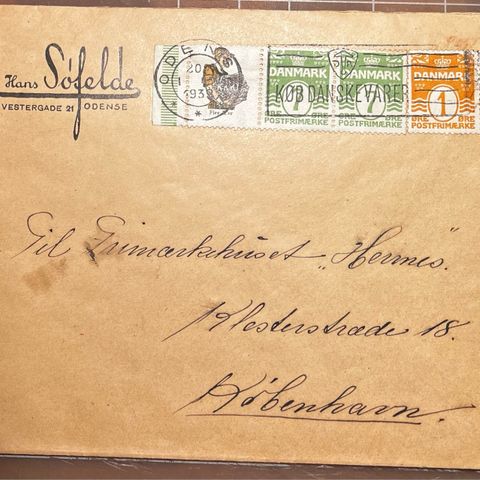 Hans Søfelde
VESTERGADE 21 ODENSE
ODENSE
20
193
KØB DANSKE VARER
DANMARK
7
ØRE ØRE
POSTFRIMÆRKE
DANMARK
7
ØRE ØRE
POSTFRIMÆRKE
DANMARK
1
ØRE ØRE
POSTFRIMÆRKE
Til Frimærkehuset „Hermes".
Klosterstræde 18.
København.